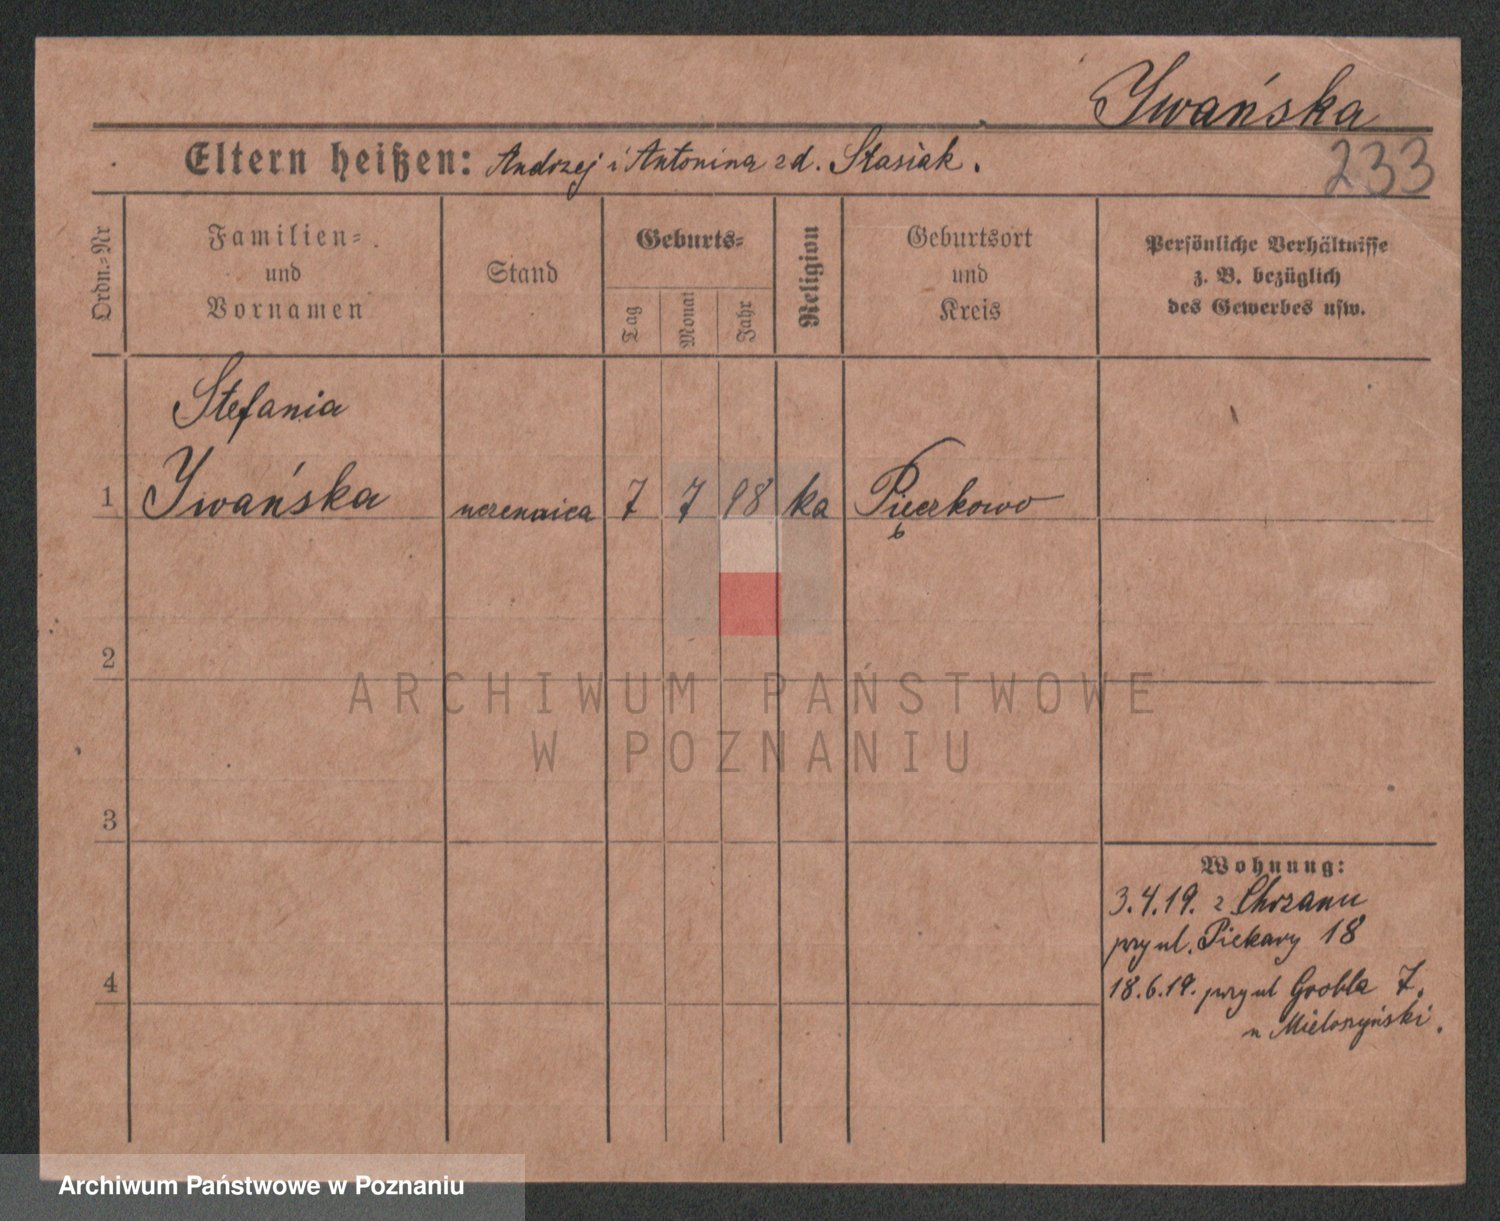 Iwańska
Eltern heißen: Andrzej i Antonina zd. Stasiak.
233
Ordn.=Nr
Familien=
und
Vornamen
Stand
Geburts=
Tag
Monat
Jahr
Religion
Geburtsort
und
Kreis
Persönliche Verhältnisse
z. B. bezüglich
des Gewerbes usw.
Stefania
1 Iwańska uczennica 7 7 98 ka Pięczkowo
2
3
4
Wohnung:
3.4.19. z Chrzanu
przy ul. Piekary 18
18.6.19. przy ul Grobla 7.
u Mieloszyński.
ARCHIWUM PAŃSTWOWE
W POZNANIU
Archiwum Państwowe w Poznaniu